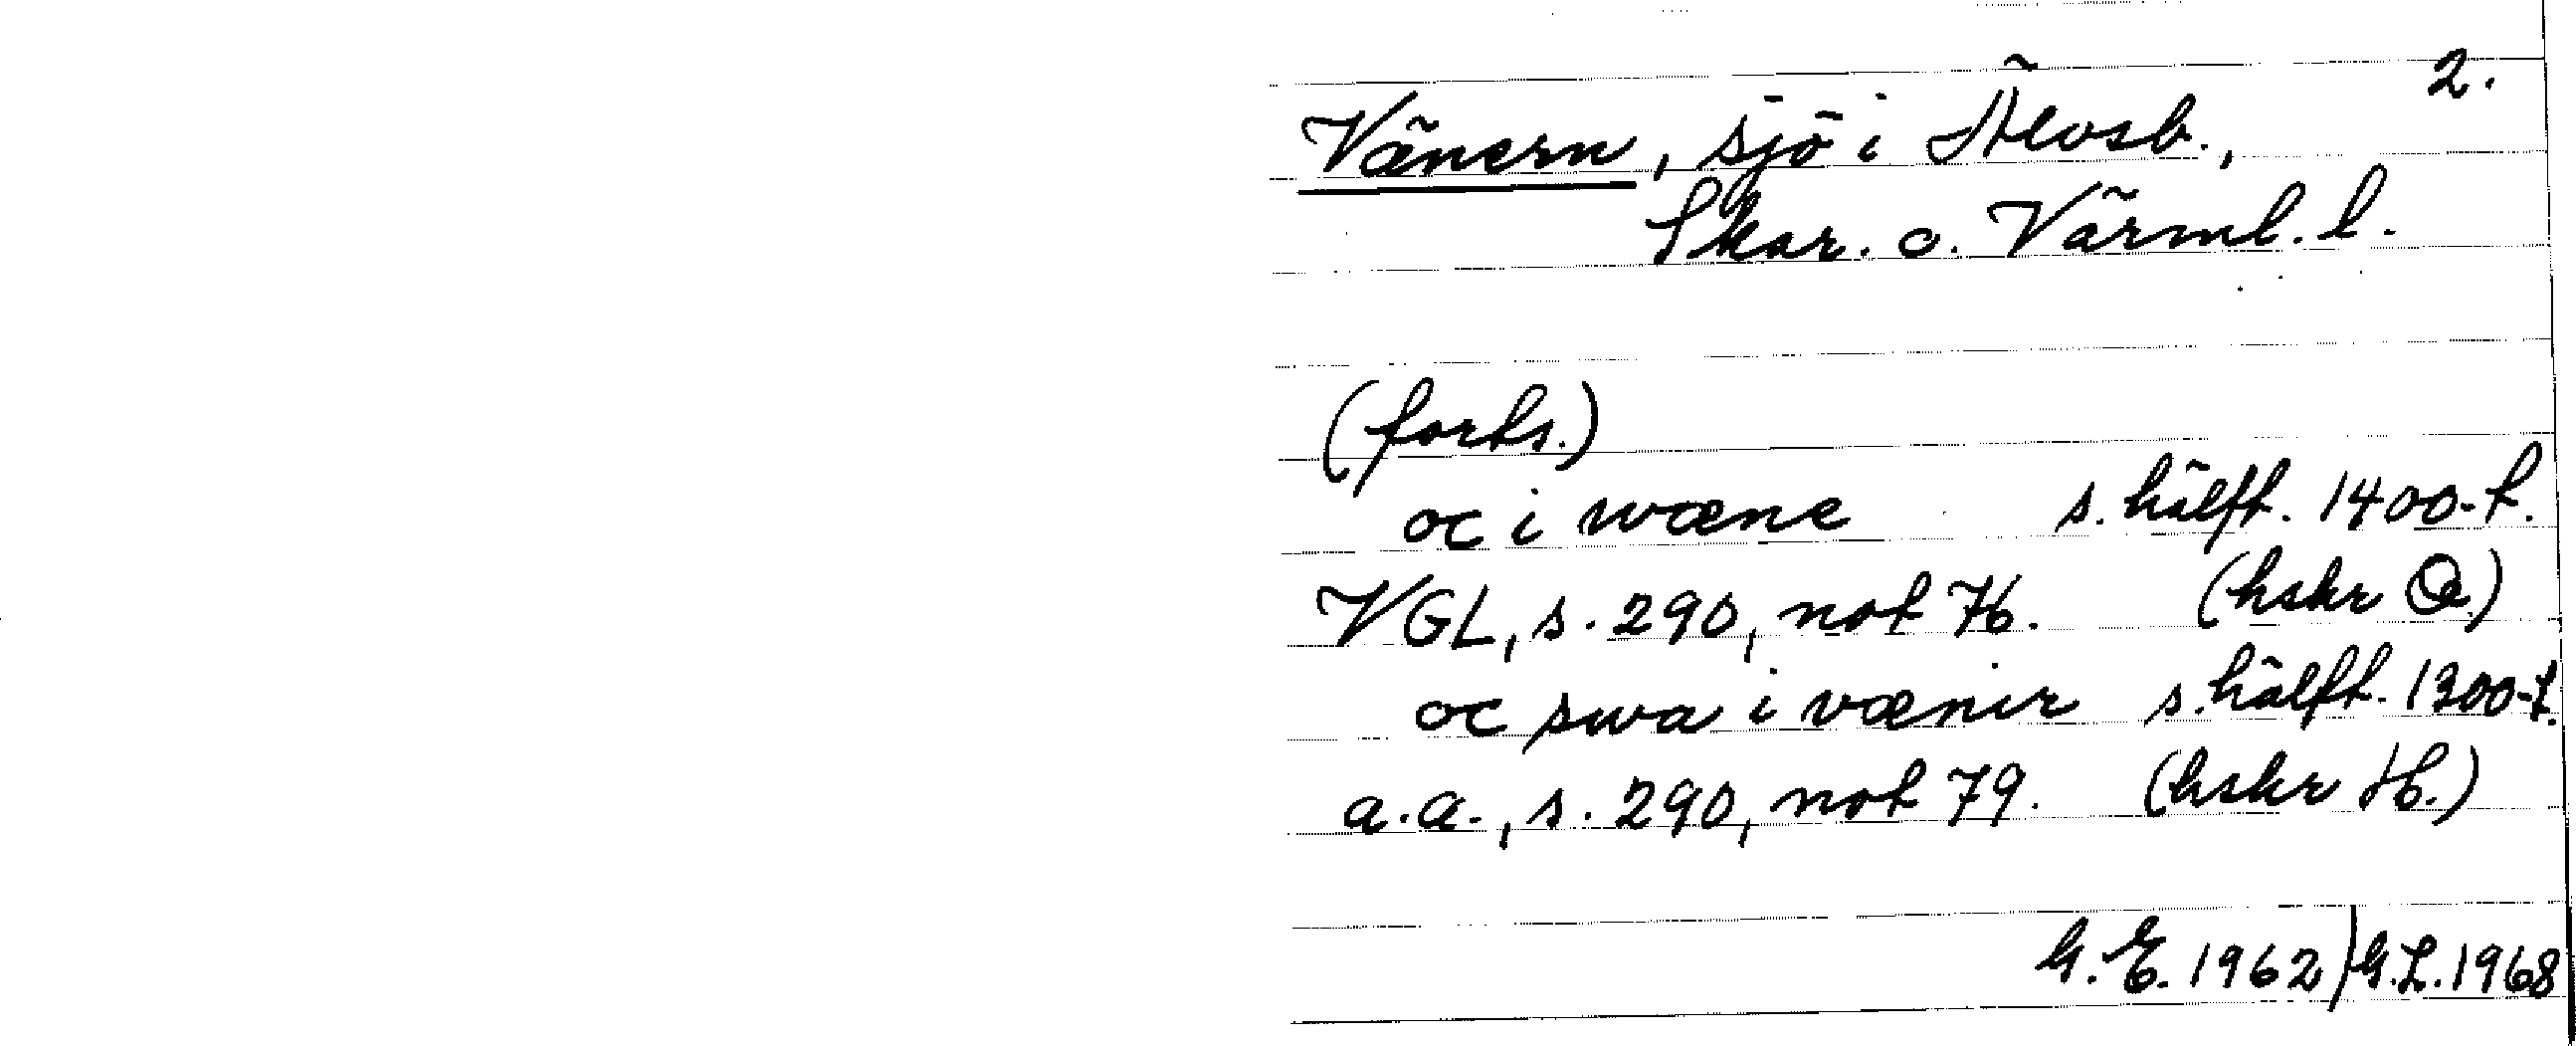 2.
Vänern, sjö i Älvsb.,
Skar. o. Värml. l.
(forts.)
oc i wæne s. hälft. 1400-t.
VGL, s. 290, not 76. (hskr O.)
oc swa i vænir s. hälft. 1300-t.
a.a., s. 290, not 79. (hskr H.)
G.E. 1962/G.L. 1968